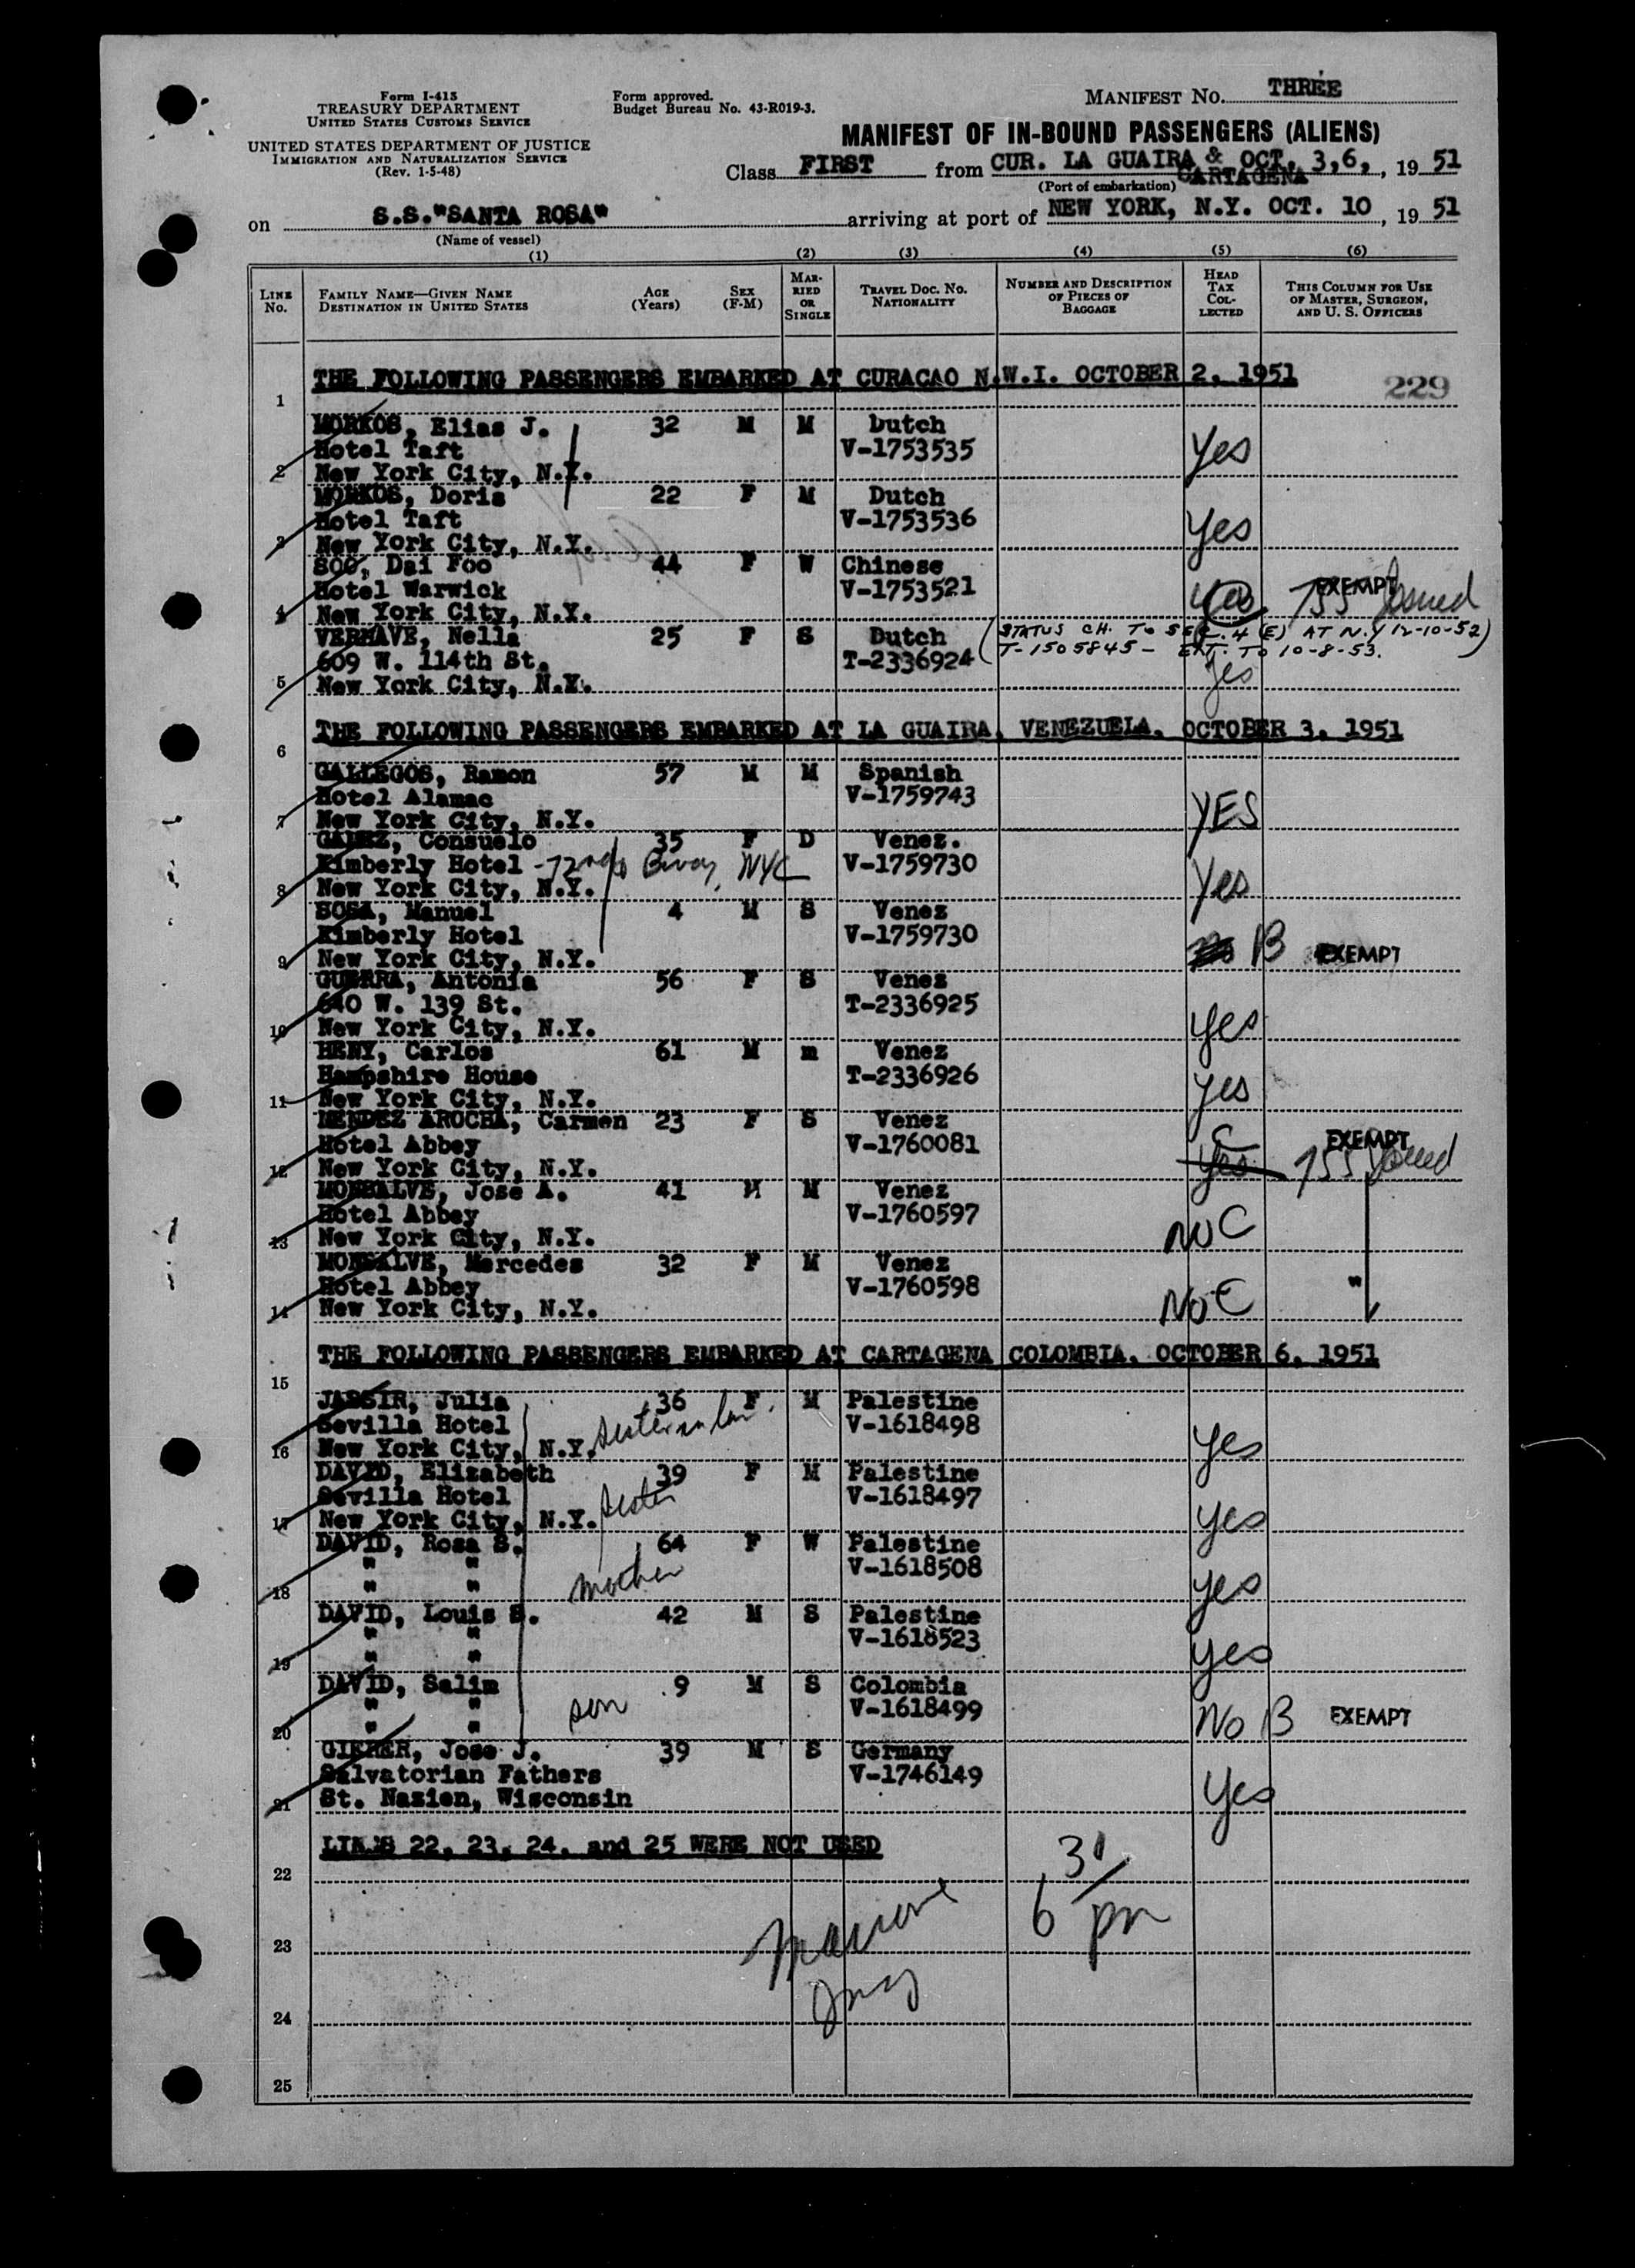 Form I-415
TREASURY DEPARTMENT
UNITED STATES CUSTOMS SERVICE
UNITED STATES DEPARTMENT OF JUSTICE
IMMIGRATION AND NATURALIZATION SERVICE
(Rev. 1-5-48)
Form approved.
Budget Bureau No. 43-R019-3.
MANIFEST NO. THREE
MANIFEST OF IN-BOUND PASSENGERS (ALIENS)
Class FIRST from CUR. LA GUAIRA & CARTAGENA OCT. 3,6, , 19 51
(Port of embarkation)
on S.S."SANTA ROSA" arriving at port of NEW YORK, N.Y. OCT. 10 , 19 51
(Name of vessel)
(1) (2) (3) (4) (5) (6)
LINE No. FAMILY NAME—GIVEN NAME DESTINATION IN UNITED STATES AGE (Years) SEX (F-M) MARRIED OR SINGLE TRAVEL DOC. NO. NATIONALITY NUMBER AND DESCRIPTION OF PIECES OF BAGGAGE HEAD TAX COLLECTED THIS COLUMN FOR USE OF MASTER, SURGEON, AND U. S. OFFICERS
THE FOLLOWING PASSENGERS EMBARKED AT CURACAO N.W.I. OCTOBER 2, 1951
229
1
MORKOS, Elias J. 32 M M Dutch
Hotel Taft V-1753535 Yes
2 New York City, N.Y.
MORKOS, Doris 22 F M Dutch
Hotel Taft V-1753536 Yes
3 New York City, N.Y.
SOO, Dai Foo 44 F W Chinese
Hotel Warwick V-1753521 Yes EXEMPT 755 Issued
4 New York City, N.Y.
VERHAVE, Nella 25 F S Dutch (STATUS CH. TO SEC. 4 (E) AT N.Y 12-10-52)
609 W. 114th St. T-2336924 T-1505845 - EXT. TO 10-8-53.
5 New York City, N.Y. Yes
THE FOLLOWING PASSENGERS EMBARKED AT LA GUAIRA, VENEZUELA, OCTOBER 3, 1951
6
GALLEGOS, Ramon 57 M M Spanish
Hotel Alamac V-1759743 YES
7 New York City, N.Y.
GAMEZ, Consuelo 35 F D Venez.
Kimberly Hotel - 72nd & Bway, NYC V-1759730 Yes
8 New York City, N.Y.
SOSA, Manuel 4 M S Venez
Kimberly Hotel V-1759730 No B EXEMPT
9 New York City, N.Y.
GUERRA, Antonia 56 F S Venez
640 W. 139 St. T-2336925 yes
10 New York City, N.Y.
HENY, Carlos 61 M m Venez
Hampshire House T-2336926 yes
11 New York City, N.Y.
MENDEZ AROCHA, Carmen 23 F S Venez
Hotel Abbey V-1760081 C Yes EXEMPT 755 Issued
12 New York City, N.Y.
MONSALVE, Jose A. 41 M M Venez
Hotel Abbey V-1760597 No C
13 New York City, N.Y.
MONSALVE, Mercedes 32 F M Venez
Hotel Abbey V-1760598 No C "
14 New York City, N.Y.
THE FOLLOWING PASSENGERS EMBARKED AT CARTAGENA COLOMBIA, OCTOBER 6, 1951
15
JASSIR, Julia 36 F M Palestine
Sevilla Hotel sister in law V-1618498 Yes
16 New York City, N.Y.
DAVID, Elizabeth 39 F M Palestine
Sevilla Hotel sister V-1618497 yes
17 New York City, N.Y.
DAVID, Rosa S. 64 F W Palestine
" " mother V-1618508 yes
18 " "
DAVID, Louis S. 42 M S Palestine
" " V-1618523 yes
19 " "
DAVID, Salim 9 M S Colombia
" " son V-1618499 No B EXEMPT
20 " "
GIERER, Jose J. 39 M S Germany
Salvatorian Fathers V-1746149 Yes
21 St. Nazien, Wisconsin
LINES 22, 23, 24, and 25 WERE NOT USED
22
6 31/ pm
23
24
25